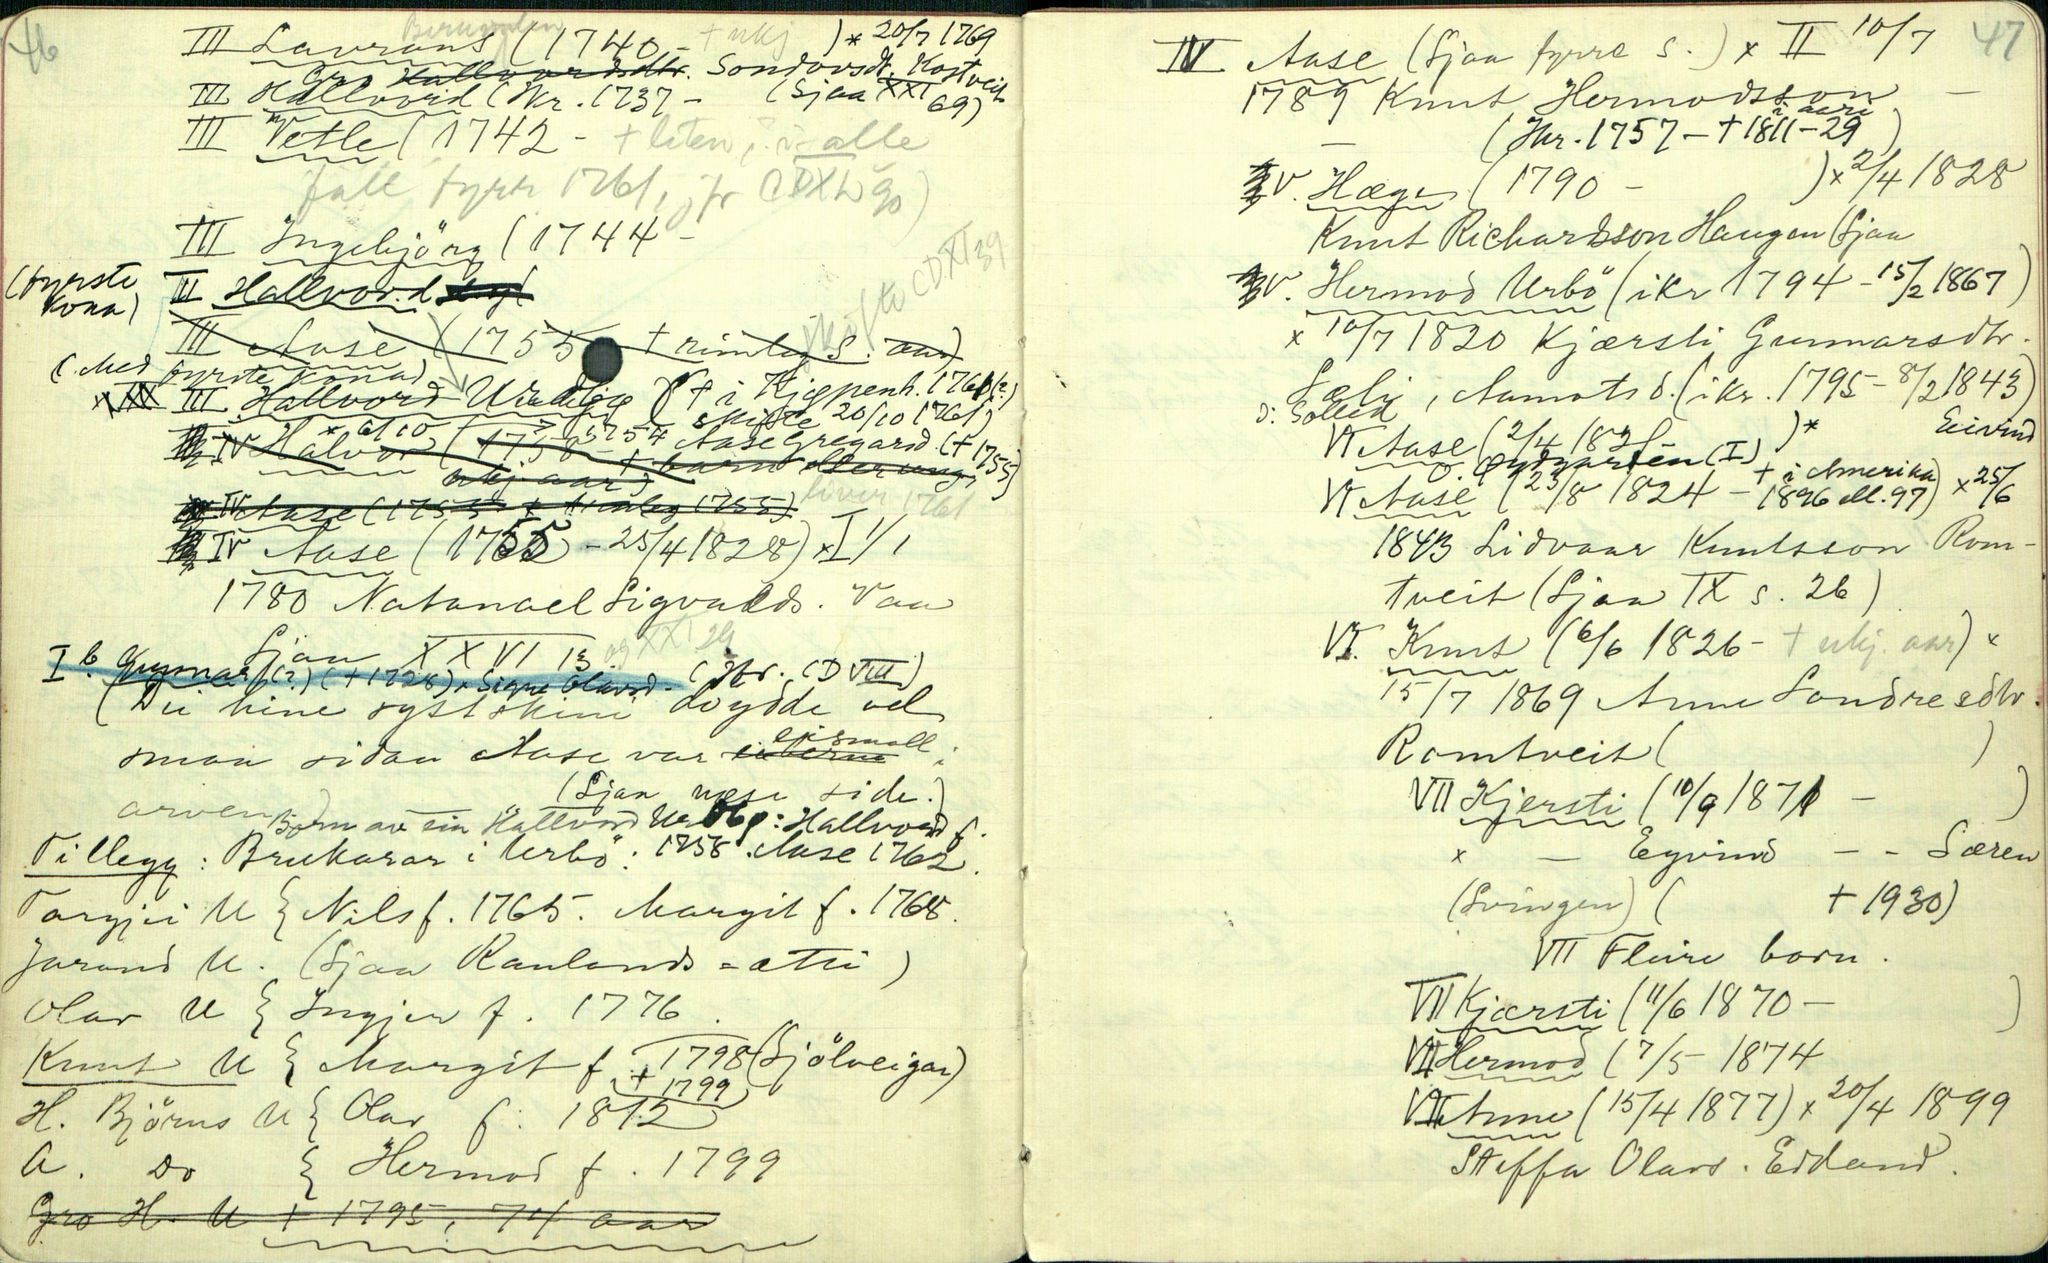 46
III Lavrans (1740 - + ukj ) * 20/7 1769
Gro Hallvordsdtr. Sondovsdt. Kostveit
III Hallvord (Kr. 1737 - (Sjaa XXI 69)
III Vetle (1742 - + liten, i alle
fall fyrr 1761, jfr CDXL 90)
III Ingebjörg (1744 -
(fyrste kona) III Hallvord
III Aase (1755 + rimleg S. aar)
skifte CDXI 39
(Med fyrste kona)
III Hallvord Urdbø († i Kjøpenh. 1761(?)
skifte 20/10 1761)
* 6/10 1754 Aase Gregarsd. (+ 1755)
IV Halvor (1758 + barn eller ung,
ukj. aar)
liver 1761
IV Aase (1755 + rimleg 1755)
IV Aase (1755 - 25/4 1828) × I 1/1
1780 Natanael Sigvalds. Vaa
Sjaa XXVI 13 og XXI 29
I b. Gunnar (?) (+ 1728) × Signe Olavsd. (Jfr. CD VIII)
(Dei hine systkini doydde vel
smaa sidan Aase var einerma i
arven) (Sjaa næse side.)
Born av ein Hallvord Urbø: Hallvord f.
Tillegg: Brukarar i Urbö: 1758. Aase 1762.
Torgjei U { Nils f. 1765. Margit f. 1768.
Jorund U. (Sjaa Raulands-ætti)
Olav U { Ingjer f. 1776.
Knut U { Margit f. 1798 (Sjölveigar)
+ 1799
H. Björns U { Olav f. 1812
A. Do { Hermod f. 1799
Gro H. U + 1795, 74 aar
47
IV Aase (Sjaa fyrre s.) × II 10/7
1789 Knut Hermodsson
(Kr. 1757 - + 1811-29)
V. Hæge (1790 - ) × 2/4 1828
Knut Richardsson Haugen (Sjaa
V. Hermod Urbö (ikr 1794 - 15/2 1867)
× 10/7 1820 Kjærsti Gunnarsdtr.
Sæli, Aamotsd. (ikr. 1795 - 8/2 1843)
VI Aase (2/4 1821 ) * Eivind
O. Øygarden (I)
VI Aase (23/8 1824 - + i Amerika 1896 ell. 97) × 25/6
1843 Lidvaar Knutsson Rom-
tveit (Sjaa IX s. 26)
VI. Knut (6/6 1826 - + ukj. aar) ×
15/7 1869 Anne Sondresdtr.
Romtveit ( )
VII Kjersti (10/9 1871 - )
× — Eyvind - - Særen
(Svingen) ( + 1930)
VII Fleire born.
VII Kjærsti (11/6 1870 - )
VII Hermod (7/5 1874
VII Anne (15/4 1877) × 20/4 1899
Steffa Olavs. Edland.